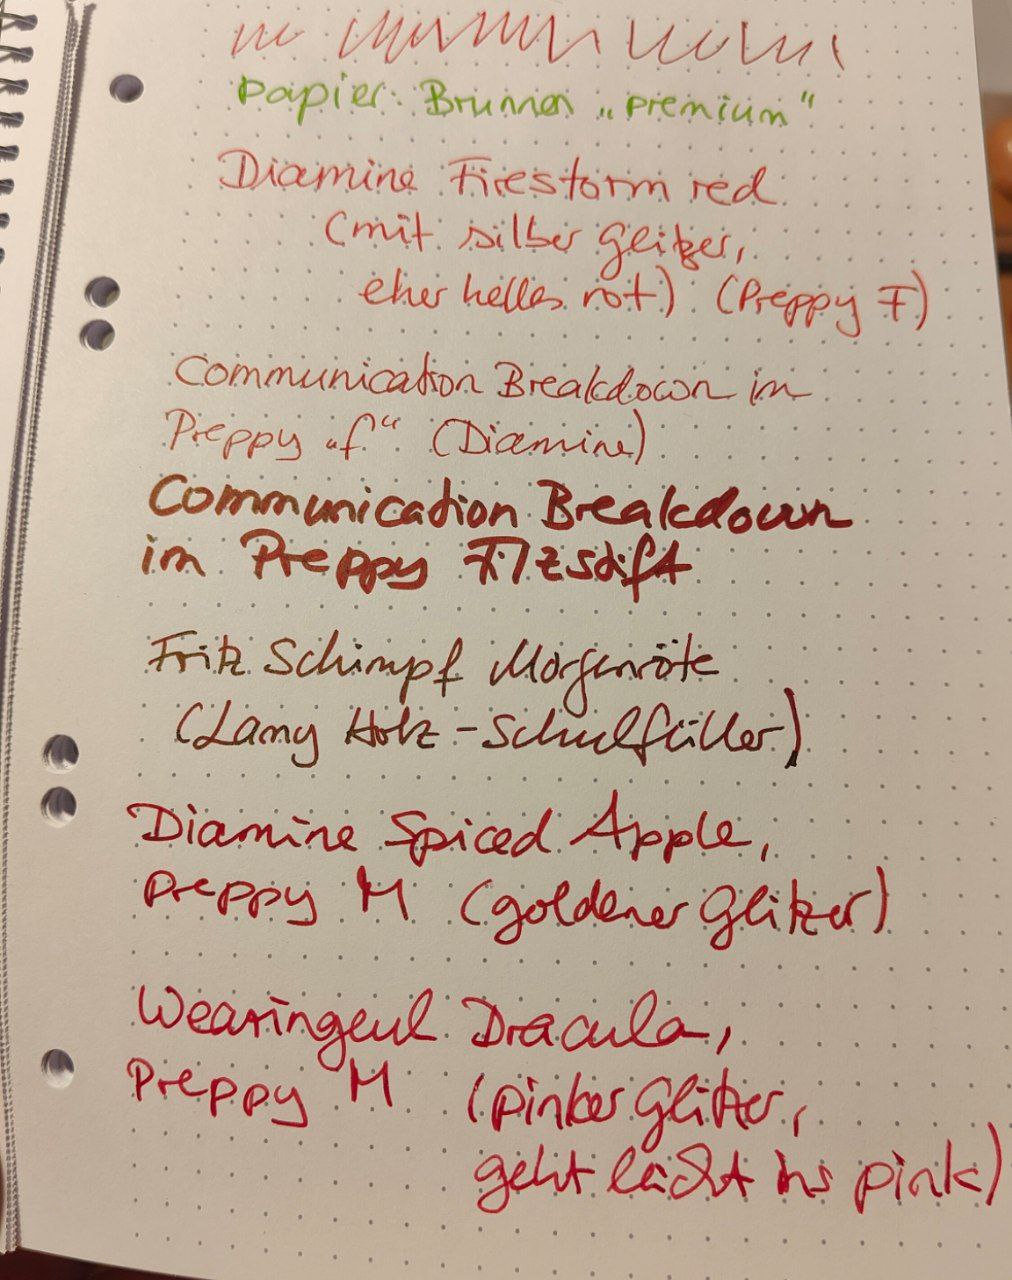 Papier: Brunnen „premium“
Diamine Firestorm red
(mit silber Glitzer,
eher helles rot) (Preppy F)
Communication Breakdown im
Preppy „f“ (Diamine)
Communication Breakdown
im Preppy Filzstift
Fritz Schimpf Morgenröte
(Lamy Holz-Schulfüller)
Diamine Spiced Apple,
Preppy M (goldener Glitzer)
Wearingeul Dracula,
Preppy M (pinker Glitzer,
geht leicht ins pink)